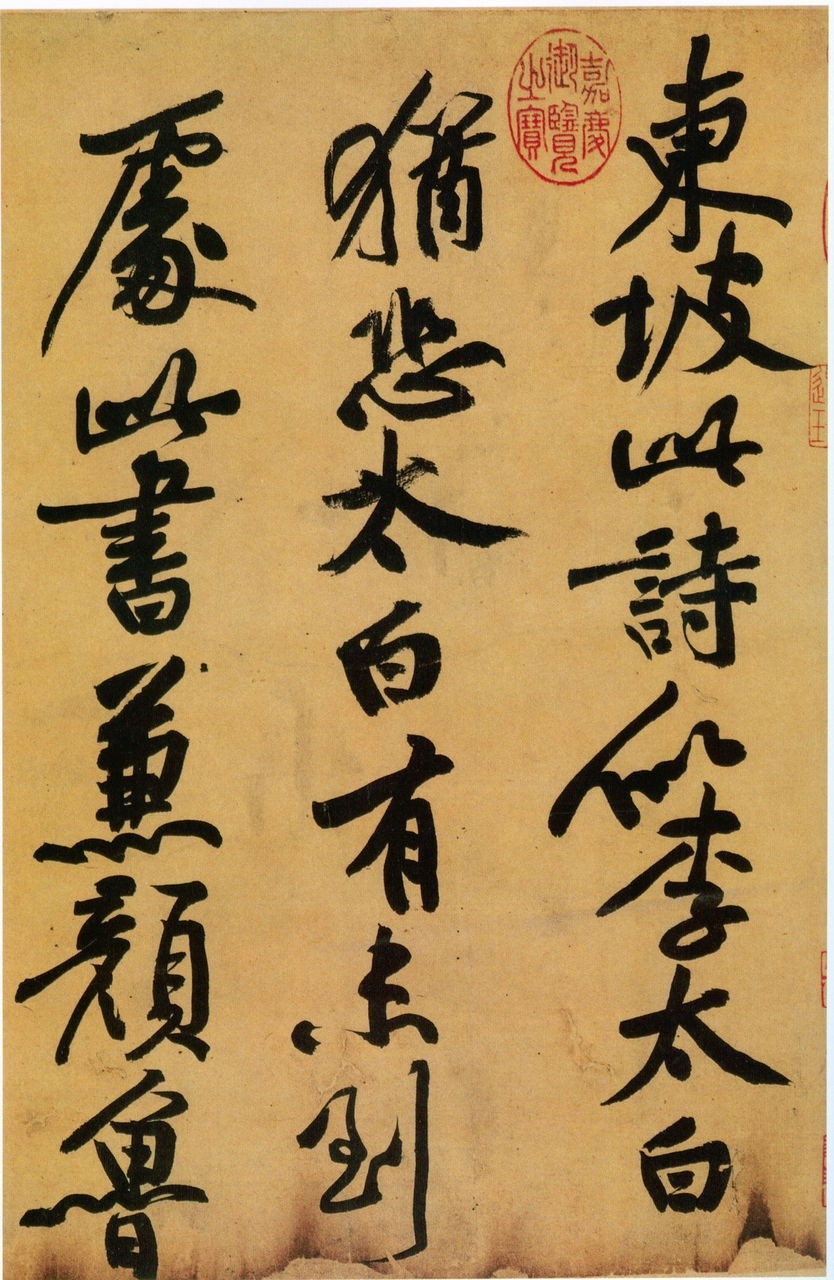 東坡此詩似李太白
猶恐太白有未到
處此書兼顏魯
嘉慶御覽之寶